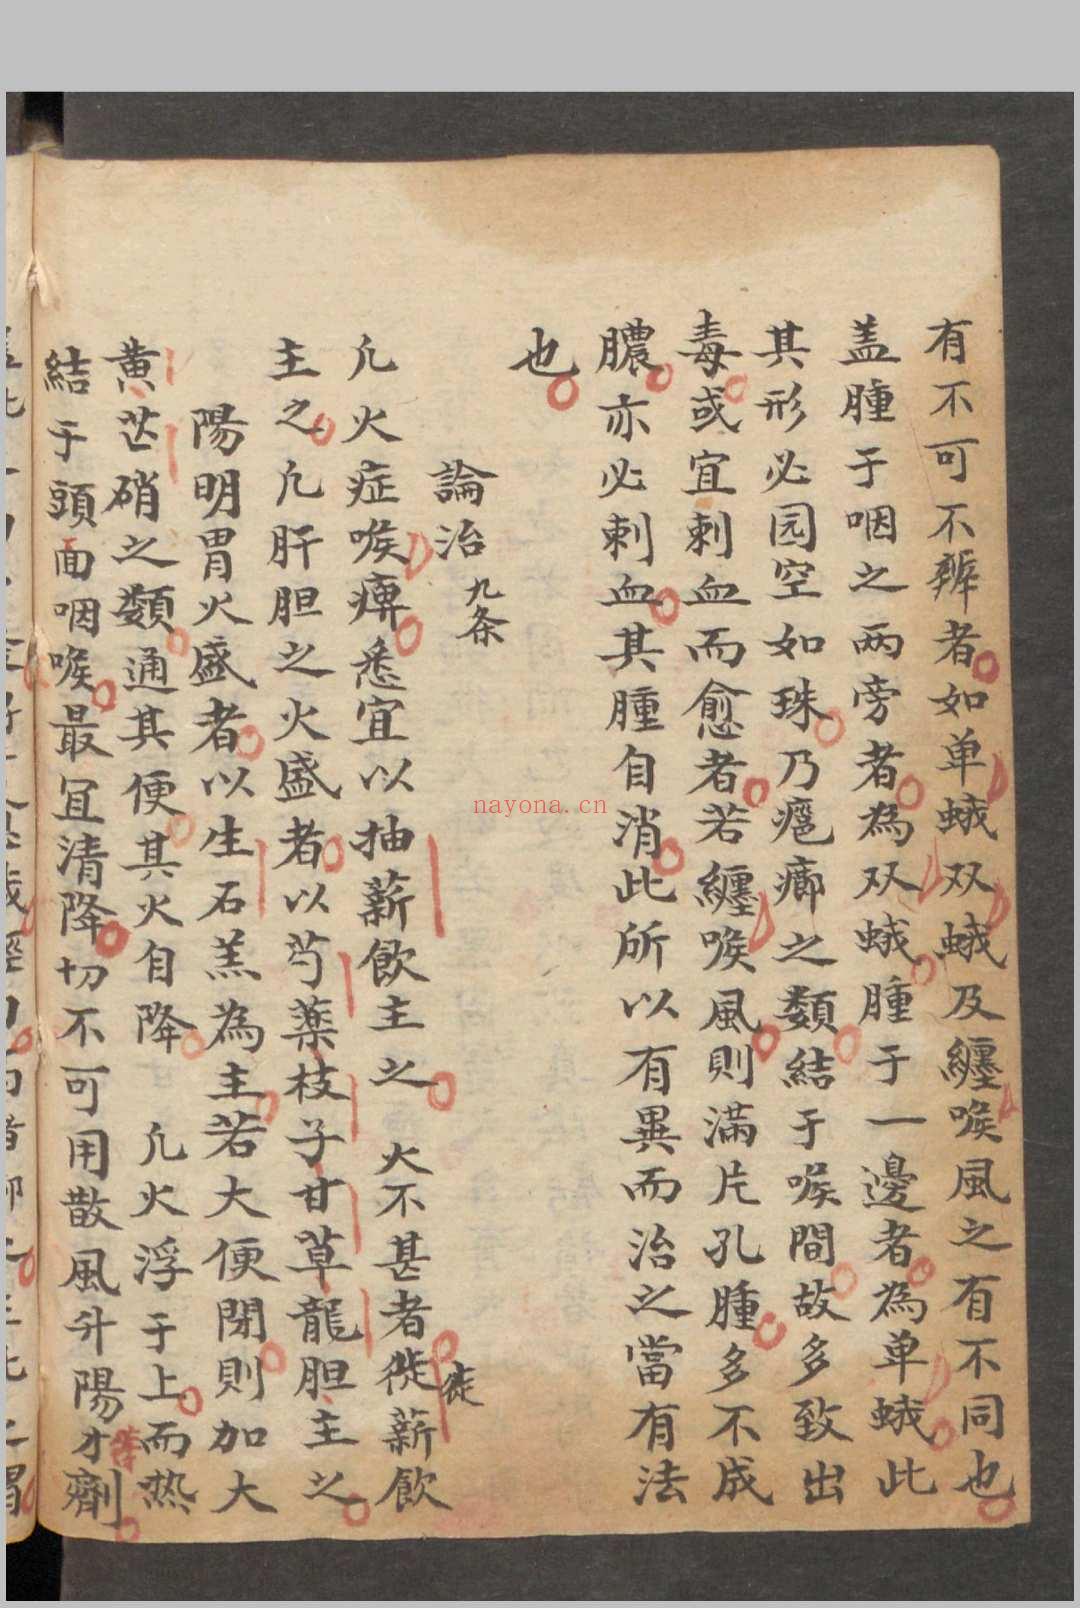 有不可不辨者如单蛾双蛾及纏喉風之有不同也
盖腫于咽之两旁者為双蛾腫于一邊者為单蛾此
其形必园空如珠乃癰癤之類結于喉間故多致出
毒或宜刺血而愈者若纏喉風則滿片孔腫多不成
膿亦必刺血其腫自消此所以有異而治之當有法
也
論治 九条
凢火症喉痹悉宜以抽薪飲主之 火不甚者徙薪飲
徙
主之凢肝胆之火盛者以芍藥枝子甘草龍胆主之
陽明胃火盛者以生石羔為主若大便閉則加大
黄芒硝之類通其便其火自降 凢火浮于上而热
結于頭面咽喉最宜清降切不可用散風升陽才劑
等
nayona.cn